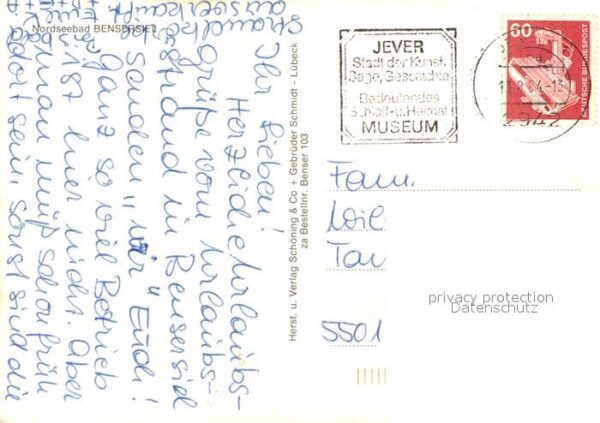 Nordseebad BENSERSIEL
Ihr Lieben!
Herzliche Urlaubs-
grüße vom Urlaubs-
strand in Bensersiel
senden "wir" Euch!
Ganz so viel Betrieb
ist hier nicht. Aber
man muß schon früh
dort sein, sonst sind die
Herst. u. Verlag Schöning & Co + Gebrüder Schmidt - Lübeck
za Bestellnr. Benser 103
JEVER
Stadt der Kunst,
Sage, Geschichte
Bedeutendes
Schloß- u. Heimat
MUSEUM
2942
60
DEUTSCHE BUNDESPOST
Fam.
Wil
Tan
5501
privacy protection
Datenschutz